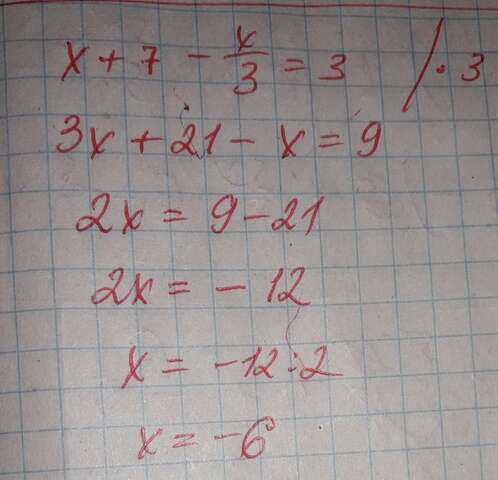 x + 7 - x/3 = 3 /·3
3x + 21 - x = 9
2x = 9 - 21
2x = - 12
x = -12:2
x = -6